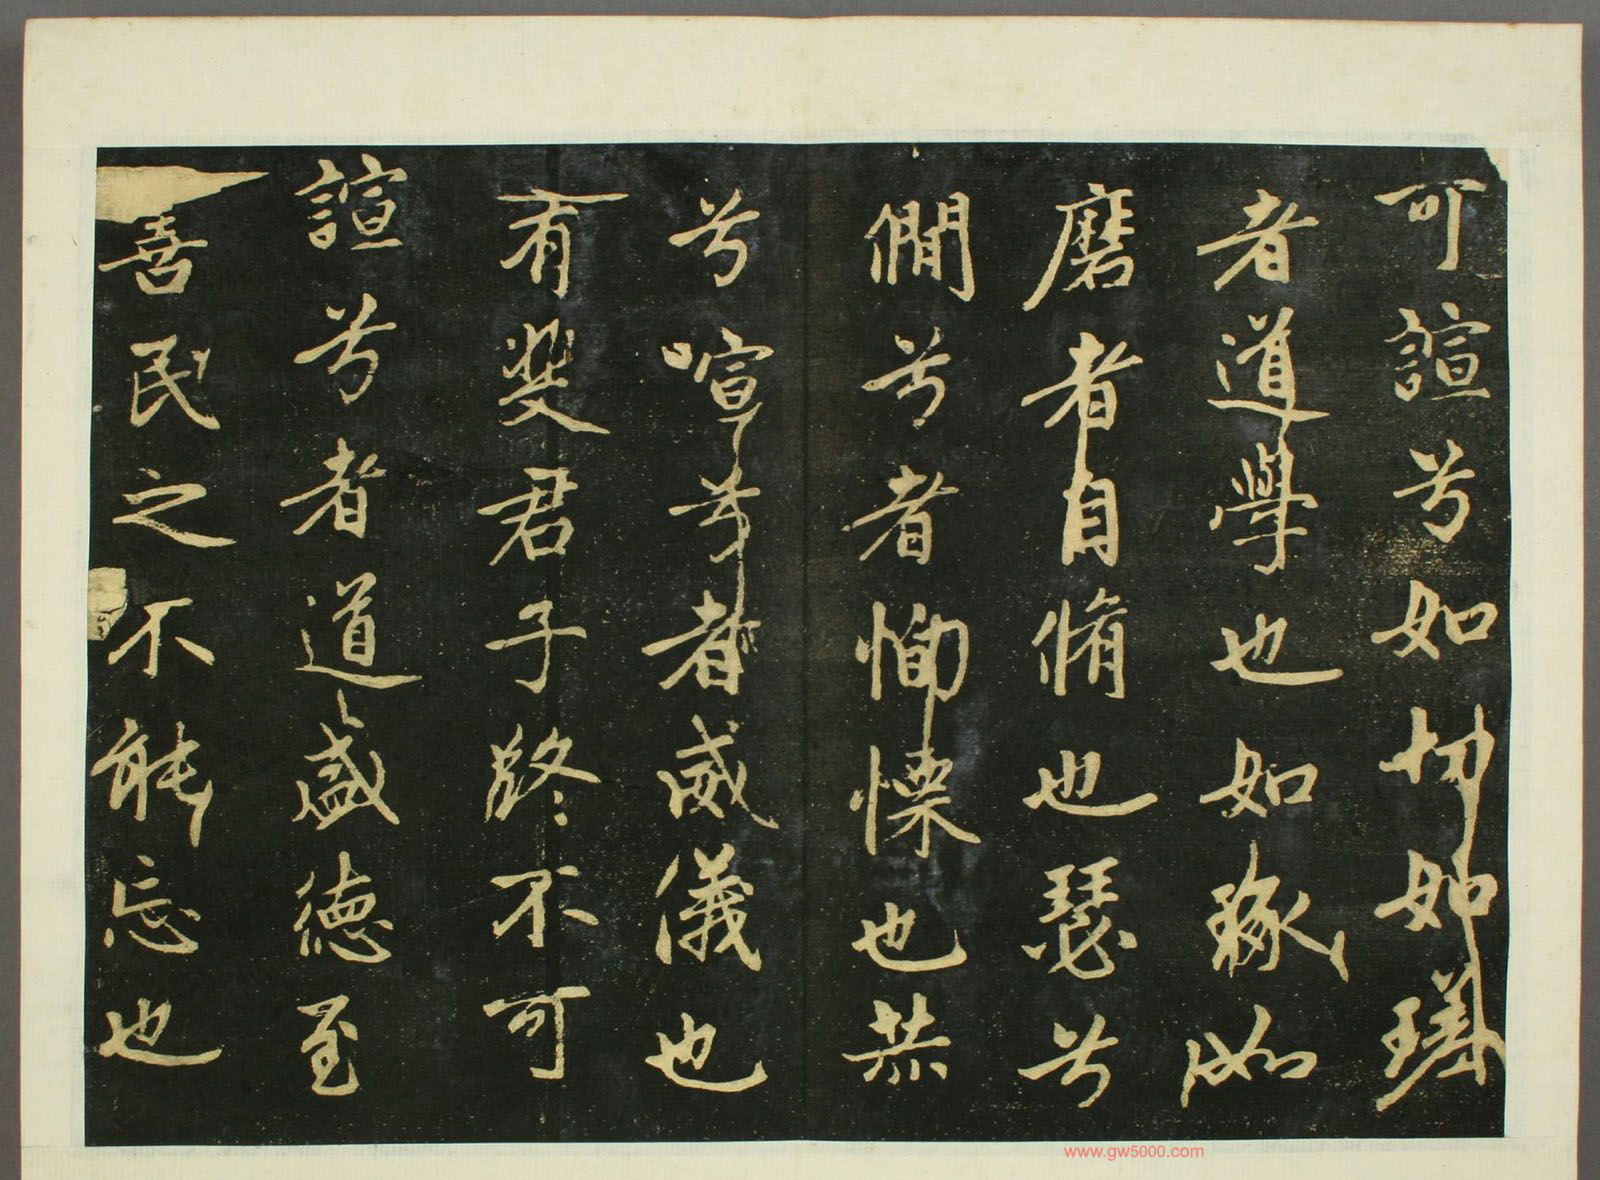 可諠兮如切如瑳
者道學也如琢如
磨者自脩也瑟兮
僩兮者恂慄也赫
兮喧兮者威儀也
有斐君子終不可
諠兮者道盛德至
善民之不能忘也
www.gw5000.com